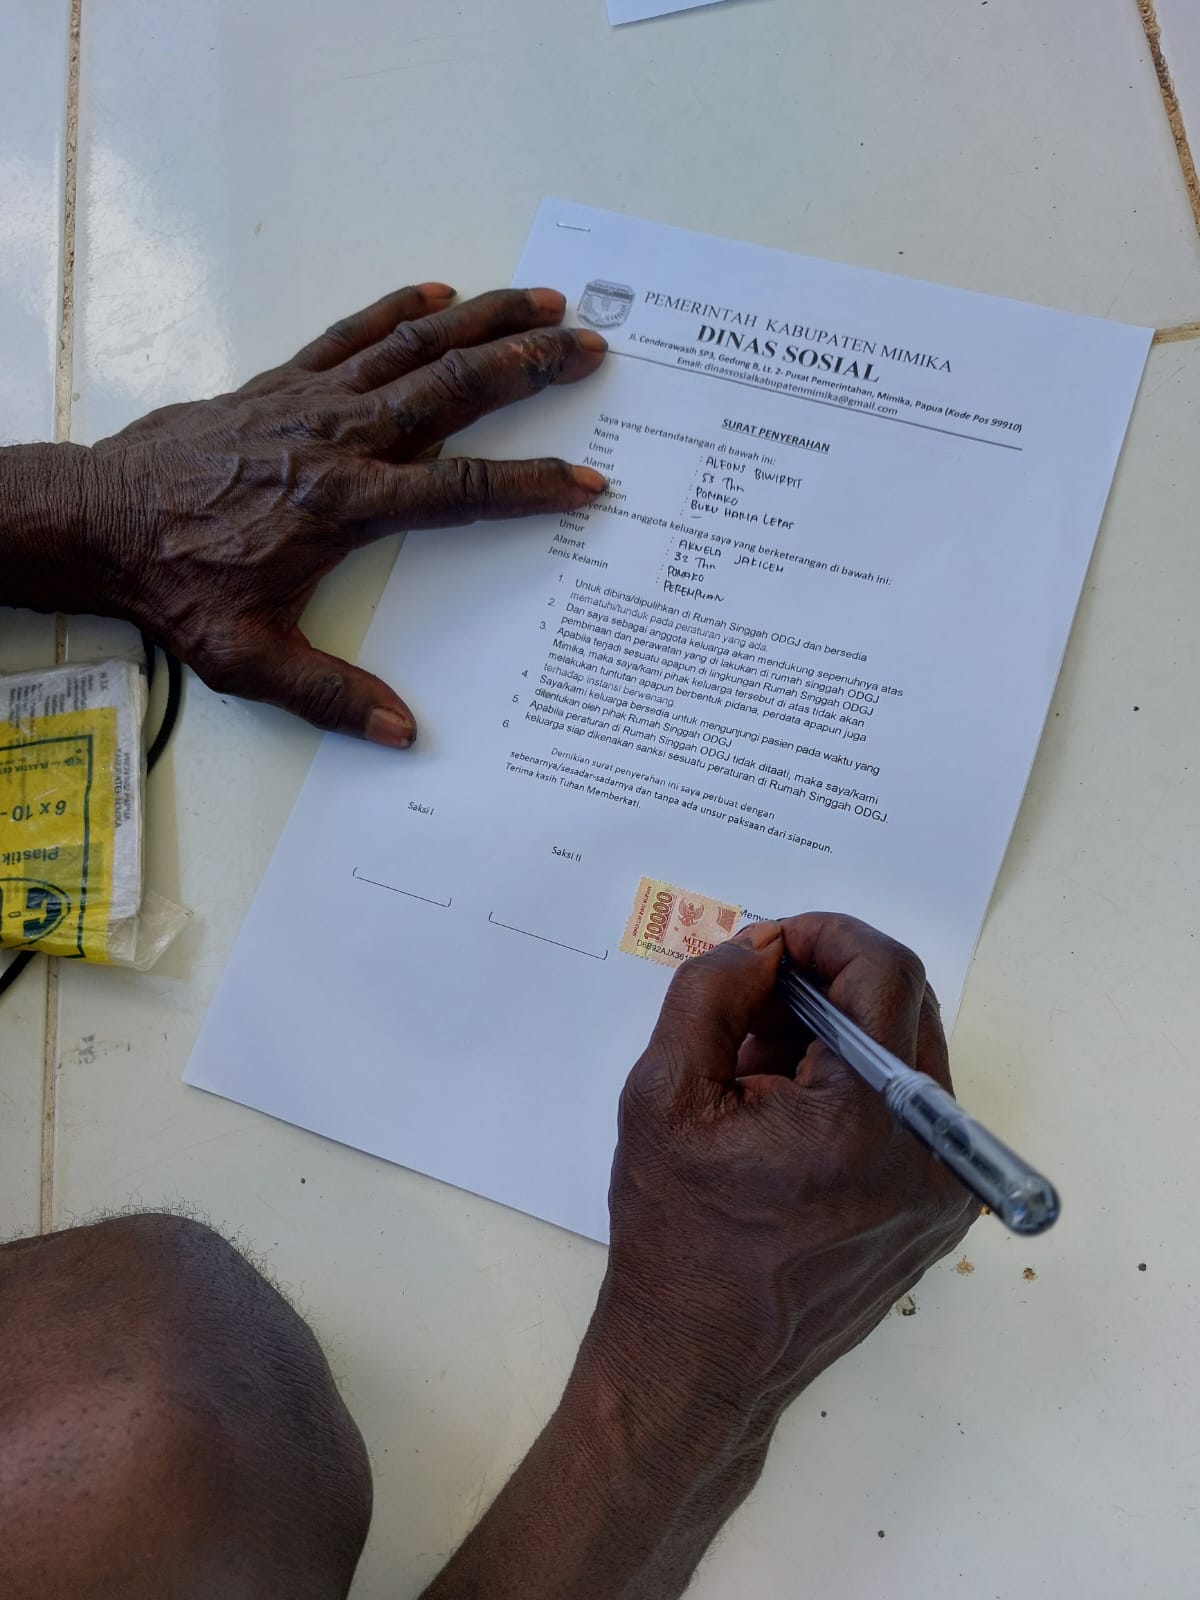 PEMERINTAH KABUPATEN MIMIKA
DINAS SOSIAL
Jl. Cenderawasih SP3, Gedung B, Lt. 2- Pusat Pemerintahan, Mimika, Papua (Kode Pos 99910)
Email: dinassosialkabupatenmimika@gmail.com
SURAT PENYERAHAN
Saya yang bertandatangan di bawah ini:
Nama : ALFONS BIWIRPIT
Umur : 53 Thn
Alamat : POMAKO
: BURU HARIA LEPAS
: -
anggota keluarga saya yang berketerangan di bawah ini:
Nama : AKNELA JAKICEM
Umur : 32 Thn
Alamat : POMAKO
Jenis Kelamin : PEREMPUAN
1. Untuk dibina/dipulihkan di Rumah Singgah ODGJ dan bersedia
mematuhi/tunduk pada peraturan yang ada.
2. Dan saya sebagai anggota keluarga akan mendukung sepenuhnya atas
pembinaan dan perawatan yang di lakukan di rumah singgah ODGJ
3. Apabila terjadi sesuatu apapun di lingkungan Rumah Singgah ODGJ
Mimika, maka saya/kami pihak keluarga tersebut di atas tidak akan
melakukan tuntutan apapun berbentuk pidana, perdata apapun juga
terhadap instansi berwenang.
4. Saya/kami keluarga bersedia untuk mengunjungi pasien pada waktu yang
ditentukan oleh pihak Rumah Singgah ODGJ
5. Apabila peraturan di Rumah Singgah ODGJ tidak ditaati, maka saya/kami
keluarga siap dikenakan sanksi sesuatu peraturan di Rumah Singgah ODGJ.
6.
Demikian surat penyerahan ini saya perbuat dengan
sebenarnya/sesadar-sadarnya dan tanpa ada unsur paksaan dari siapapun.
Terima kasih Tuhan Memberkati.
Saksi I
Saksi II
10000
6 x 10
Plastik